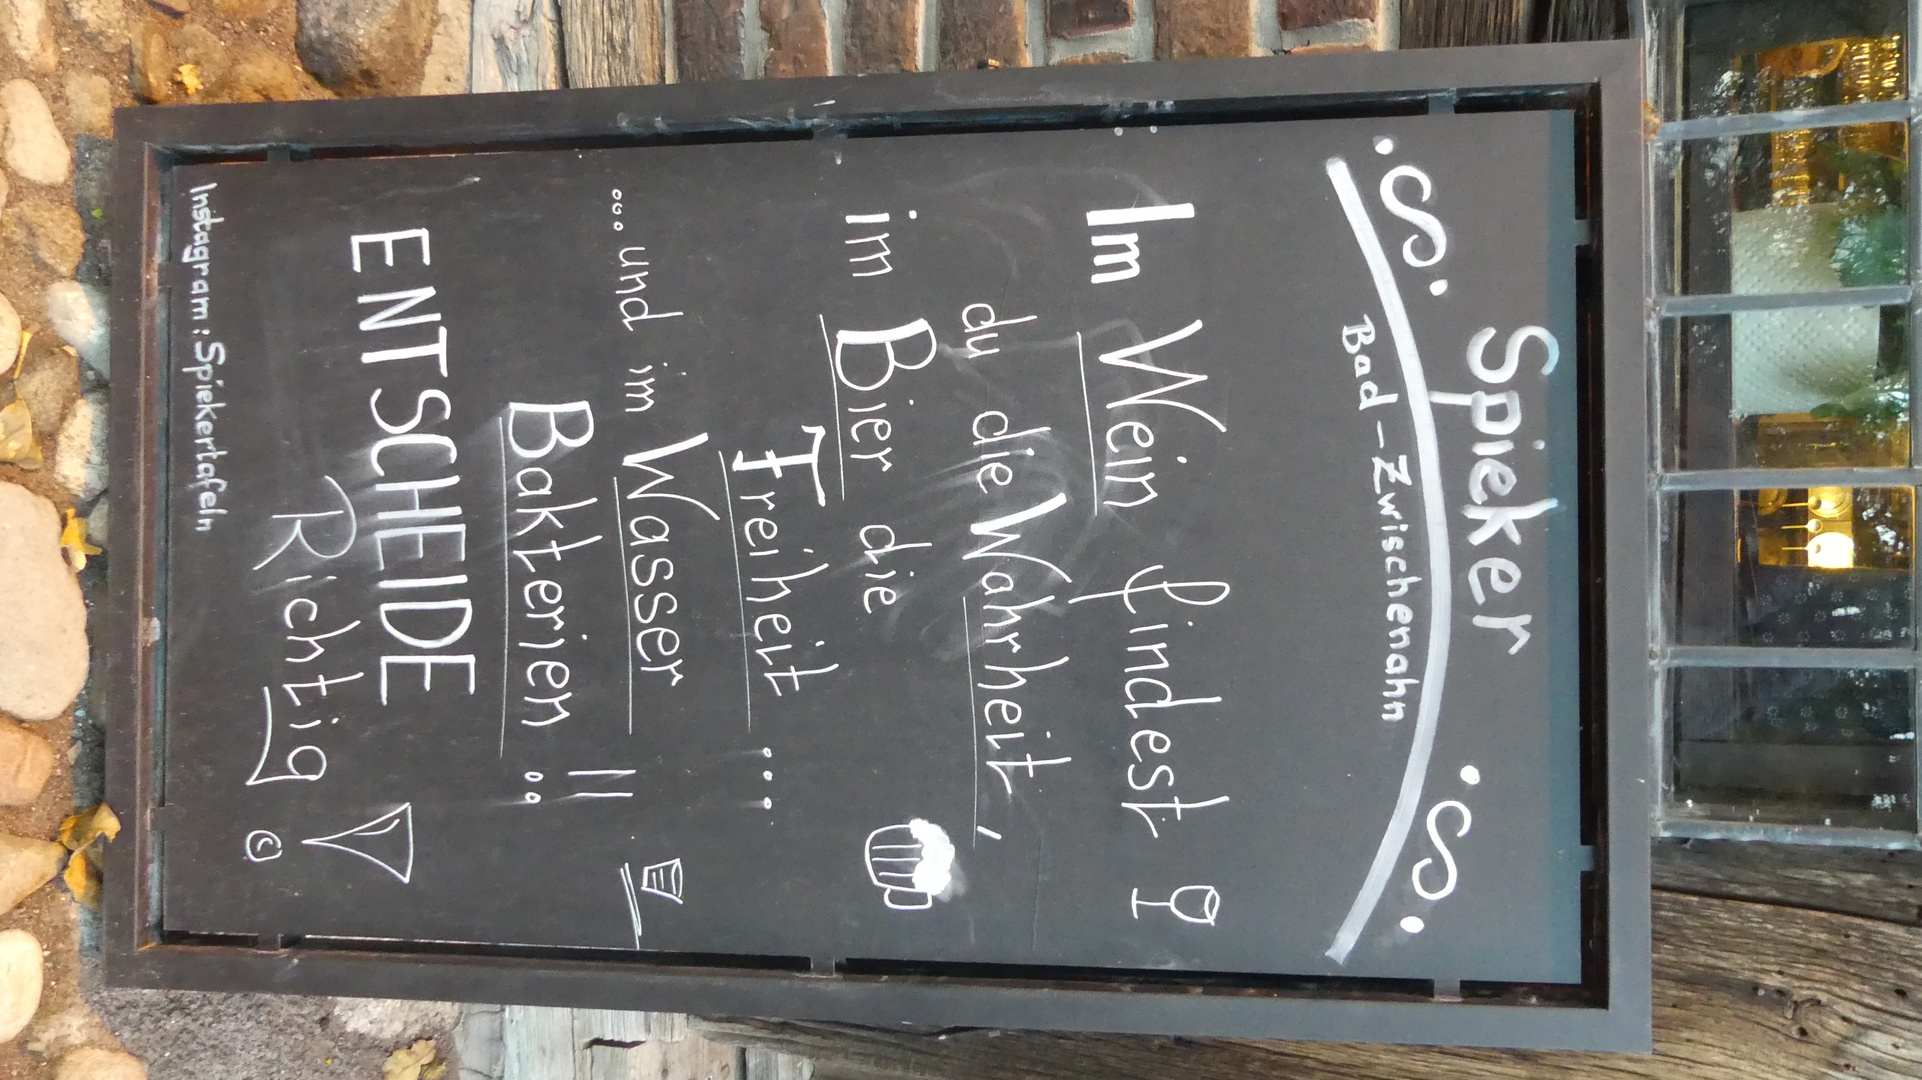 Spieker
Bad-Zwischenahn
Im Wein findest
du die Wahrheit,
im Bier die
Freiheit ...
...und im Wasser
Bakterien !!
ENTSCHEIDE
Richtig !
©
Instagram: Spiekertafeln